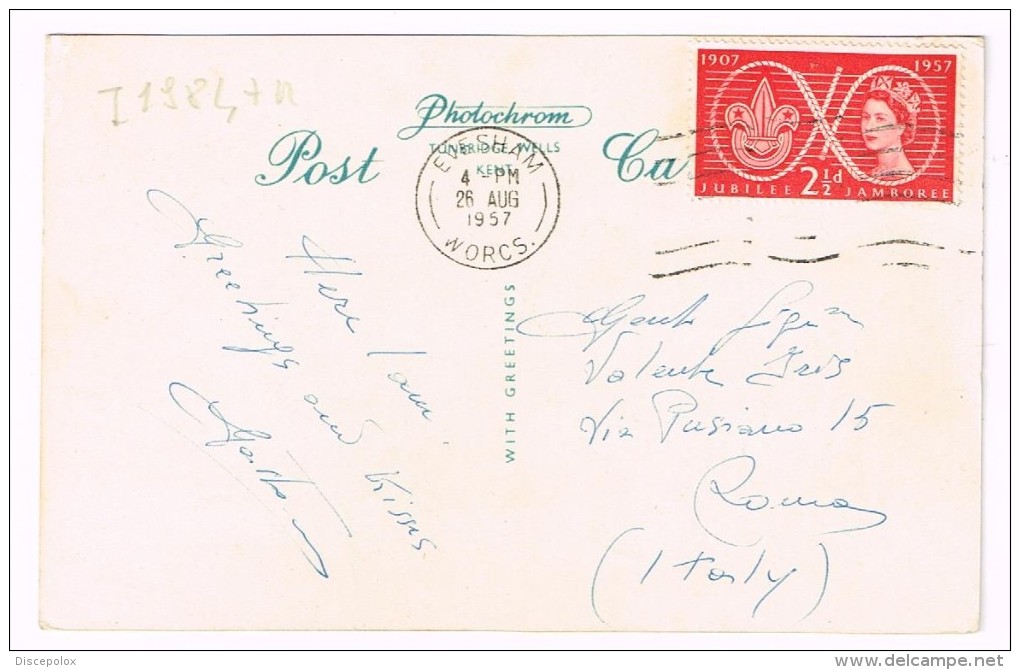 Photochrom
TUNBRIDGE WELLS
KENT
Post Ca
EVESHAM
4 - PM
26 AUG
1957
WORCS.
1907 1957
JUBILEE 2½d JAMBOREE
WITH GREETINGS
Here I am
Greetings and kisses
Valente Iris
Via Pusiano 15
Roma
(Italy)
Discepolox
www.delcampe.net